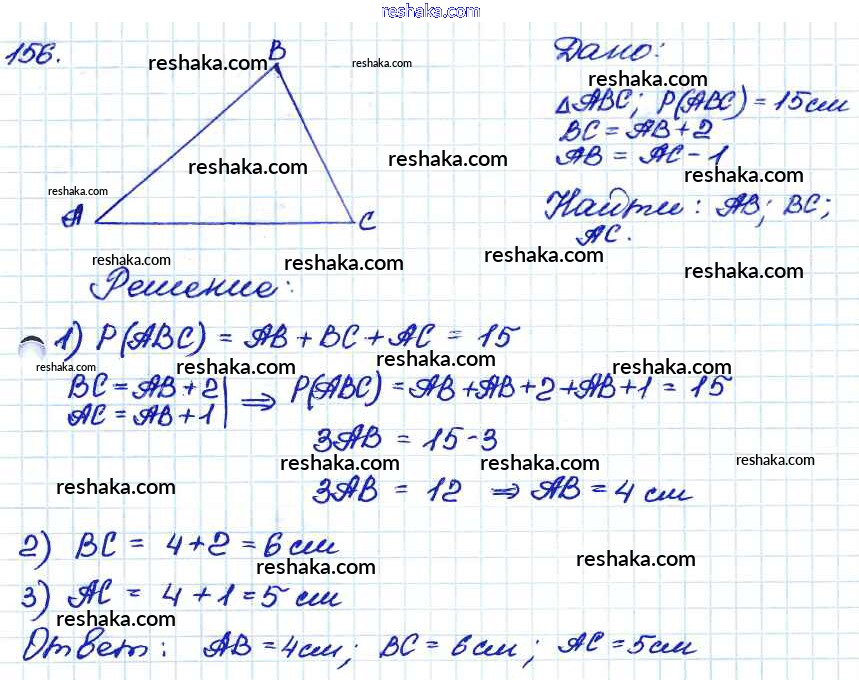 reshaka.com
156.
B
reshaka.com
reshaka.com
Дано:
reshaka.com
△ABC; P(ABC) = 15 см
BC = AB + 2
AB = AC - 1
reshaka.com
reshaka.com
reshaka.com
reshaka.com
A
C
Найти: AB; BC;
AC.
reshaka.com
reshaka.com
reshaka.com
reshaka.com
Решение:
1) P(ABC) = AB + BC + AC = 15
reshaka.com
reshaka.com
reshaka.com
reshaka.com
BC = AB + 2
AC = AB + 1
⇒ P(ABC) = AB + AB + 2 + AB + 1 = 15
3AB = 15 - 3
reshaka.com
reshaka.com
reshaka.com
reshaka.com
3AB = 12 ⇒ AB = 4 см
2) BC = 4 + 2 = 6 см
reshaka.com
reshaka.com
3) AC = 4 + 1 = 5 см
reshaka.com
reshaka.com
Ответ: AB = 4 см; BC = 6 см; AC = 5 см